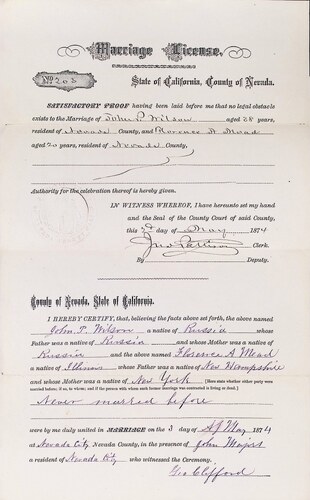 Marriage License.
No 208
State of California, County of Nevada.
SATISFACTORY PROOF having been laid before me that no legal obstacle
exists to the Marriage of John P. Wilson aged 28 years,
resident of Nevada County, and Florence A Mead
aged 20 years, resident of Nevada County,
Authority for the celebration thereof is hereby given.
IN WITNESS WHEREOF, I have hereunto set my hand
and the Seal of the County Court of said County,
this 2d day of May 1874
Clerk.
By Deputy.
County of Nevada, State of California.
I HEREBY CERTIFY, that, believing the facts above set forth, the above named
John. P. Wilson a native of Russia whose
Father was a native of Russia and whose Mother was a native of
Russia and the above named Florence A Mead
a native of Illinois whose Father was a native of New Hampshire
and whose Mother was a native of New York (Here state whether either party were
married before; if so, to whom; and if the person with whom such marriage was contracted is living or dead.)
Never married before
were by me duly united in MARRIAGE on the 3 day of May 1874
at Nevada City Nevada County, in the presence of John
a resident of Nevada City who witnessed the Ceremony.
Geo Clifford